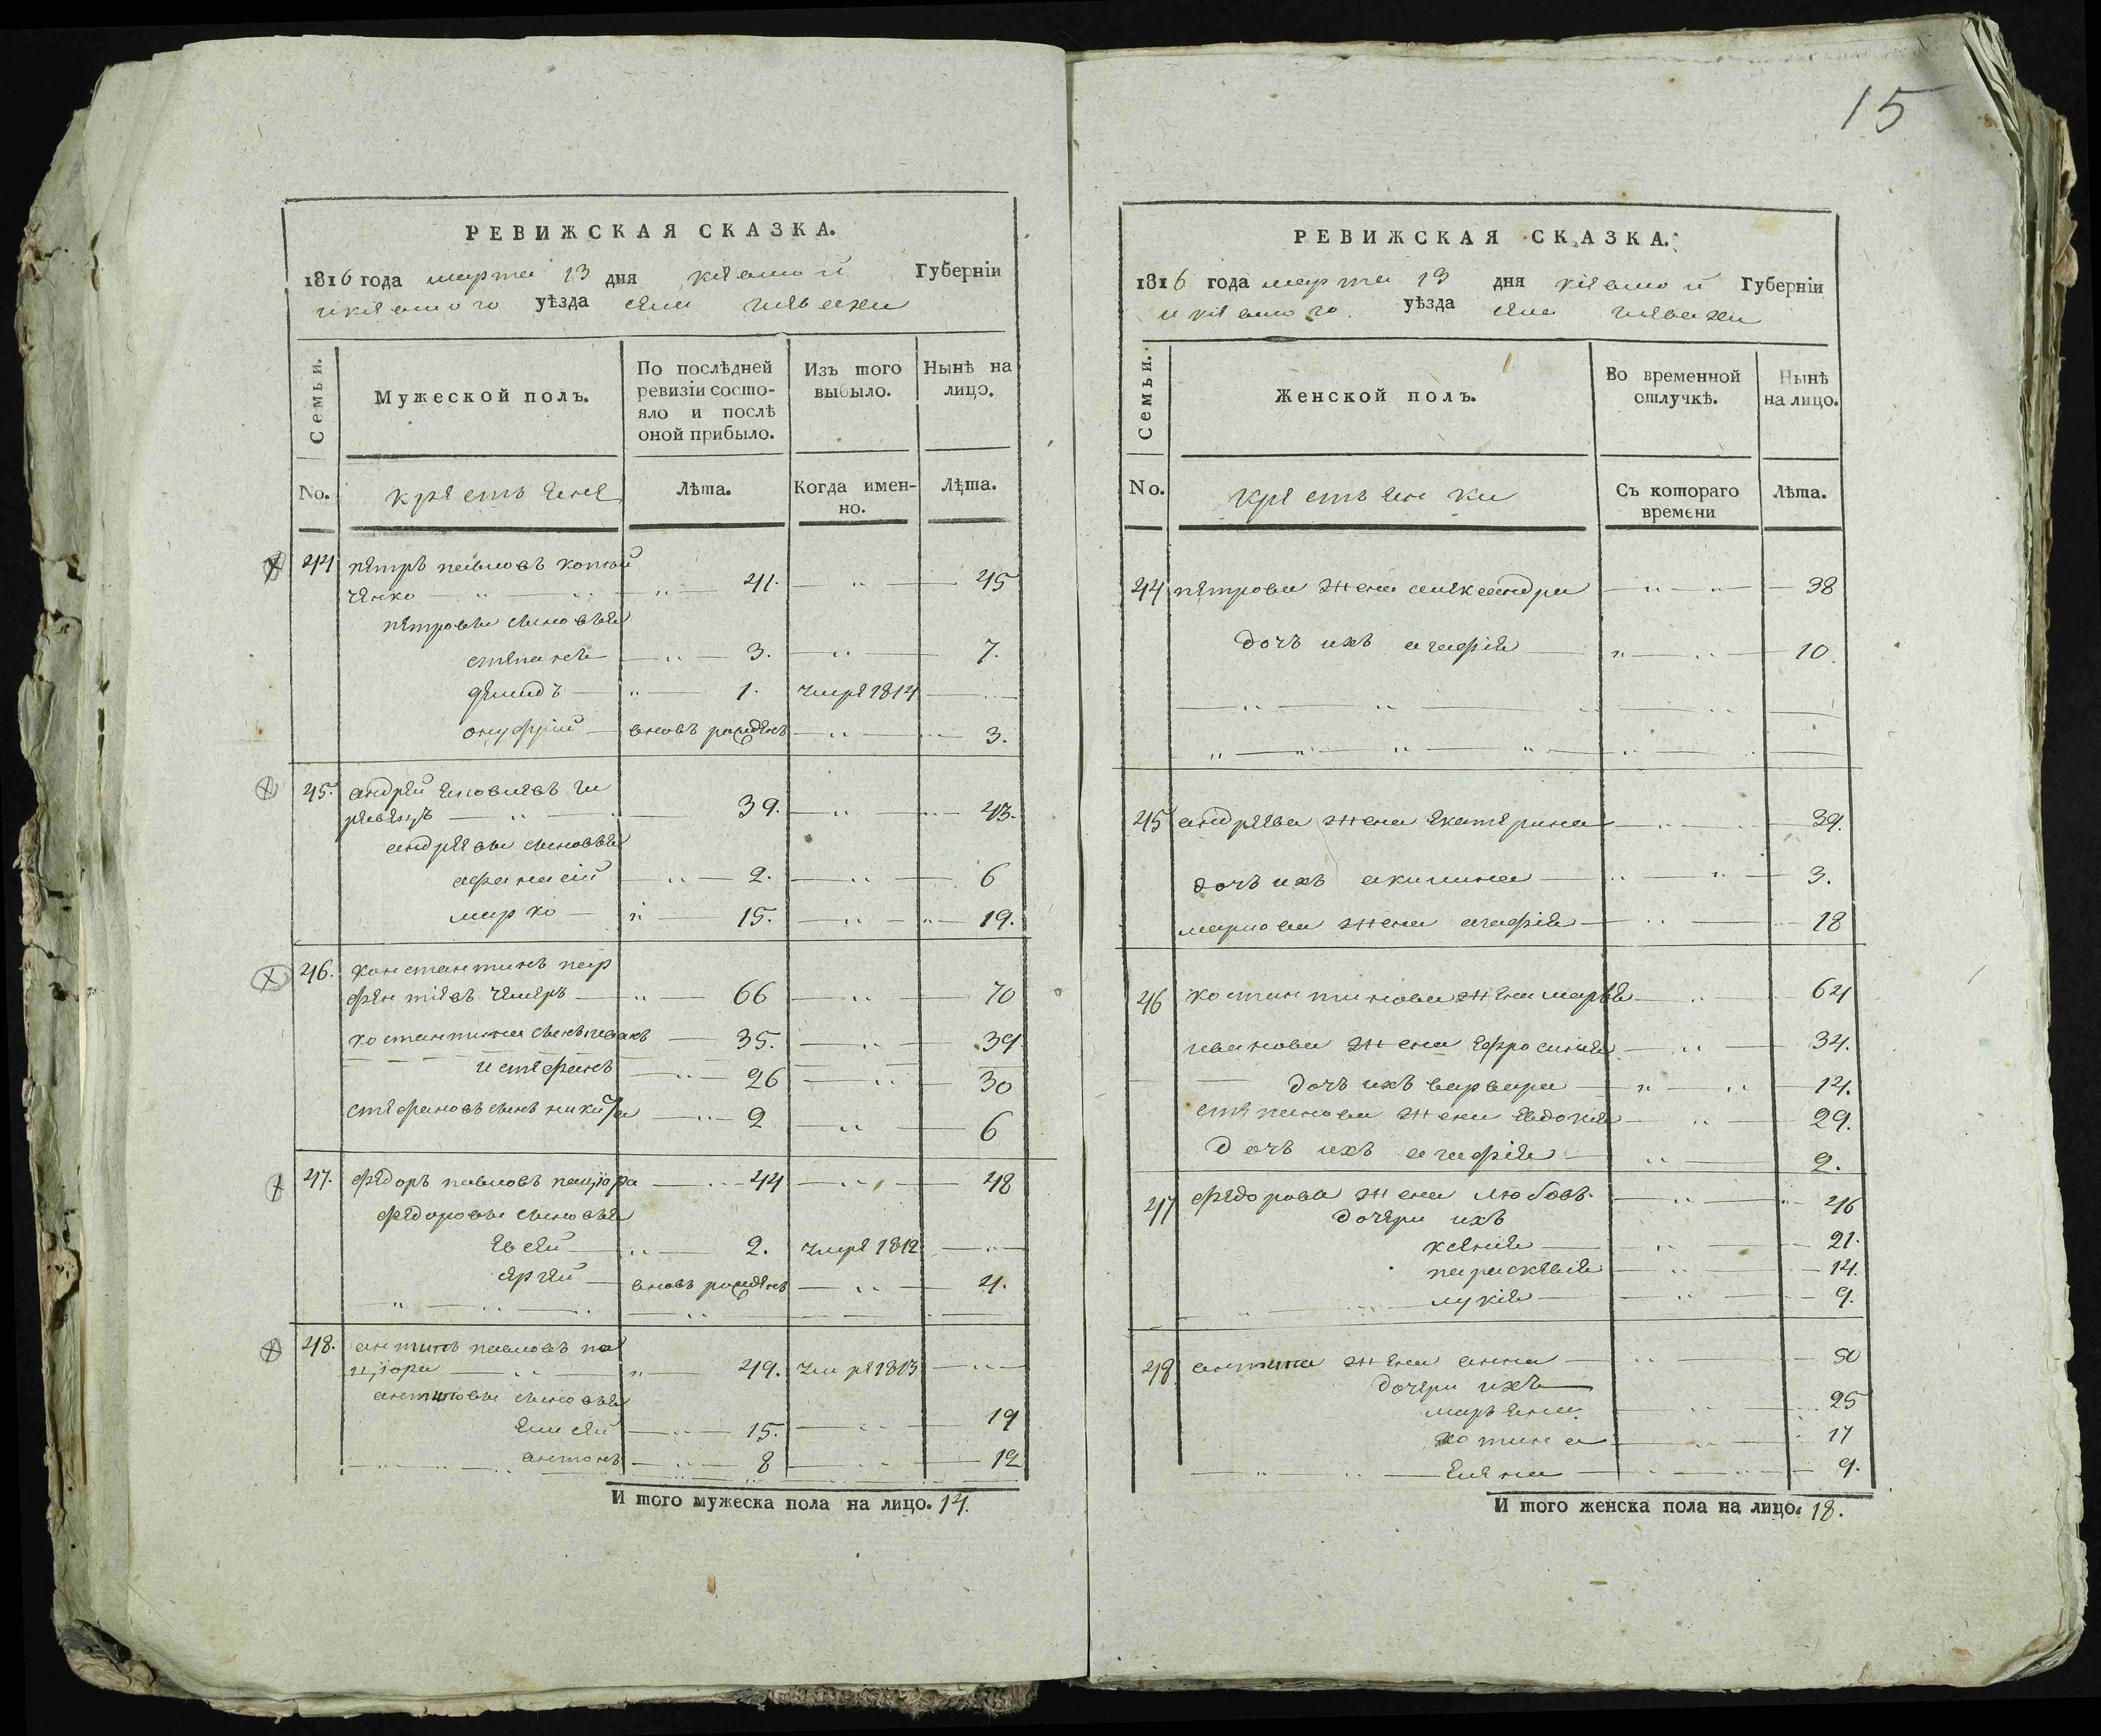 15
РЕВИЖСКАЯ СКАЗКА.
1816 года марта 13 дня кіевской Губерніи
икіевского уѣзда села гвевахи
Семьи.
Мужеской полъ.
По послѣдней ревизіи состояло и послѣ оной прибыло.
Изъ того выбыло.
Нынѣ на лицо.
No.
крестьяне
Лѣта.
Когда именно.
Лѣта.
44 петръ павловъ
ченко 41. 45
петровы сыновья
степанъ 3. 7.
демидъ 1. умре 1814
онуфрій вновь рожденъ 3.
45. андрей
39. 43.
андреевы сыновья
афанасій 2. 6
марко 15. 19.
46. константинъ пар
фентіевъ чемеръ 66 70
костантина сынъ иванъ 35. 39
и стефанъ 26 30
стефановъ сынъ никита 2 6
47. федоръ павловъ пацюра 44 48
федоровы сыновья
евсей 2. умре 1812
сергей вновь рожденъ 4.
48. антипъ павловъ па
цюра 49. умре 1813
антиповы сыновья
елисей 15. 19
антонъ 8 12
И того мужеска пола на лицо. 14.
РЕВИЖСКАЯ СКАЗКА.
1816 года марта 13 дня кіевской Губерніи
икіевского уѣзда села гвевахи
Семьи.
Женской полъ.
Во временной отлучкѣ.
Нынѣ на лицо.
No.
крестьянки
Съ котораго времени
Лѣта.
44 петрова жена александра 38
дочъ ихъ агафія 10.
45 андреева жена екатерина 39.
дочъ ихъ акилина 3.
маркова жена агафія 18
46 костантинова жена марья 64
иванова жена ефросинія 34.
дочъ ихъ варвара 14.
степанова жена евдокія 29.
дочъ ихъ агафія 2.
47 федорова жена любовь 46
дочери ихъ
ксенія 21.
параскевія 14.
лукія 9.
48 антипа жена анна 50
дочери ихъ
марьяна 25
хотина 17
елена 9.
И того женска пола на лицо. 18.